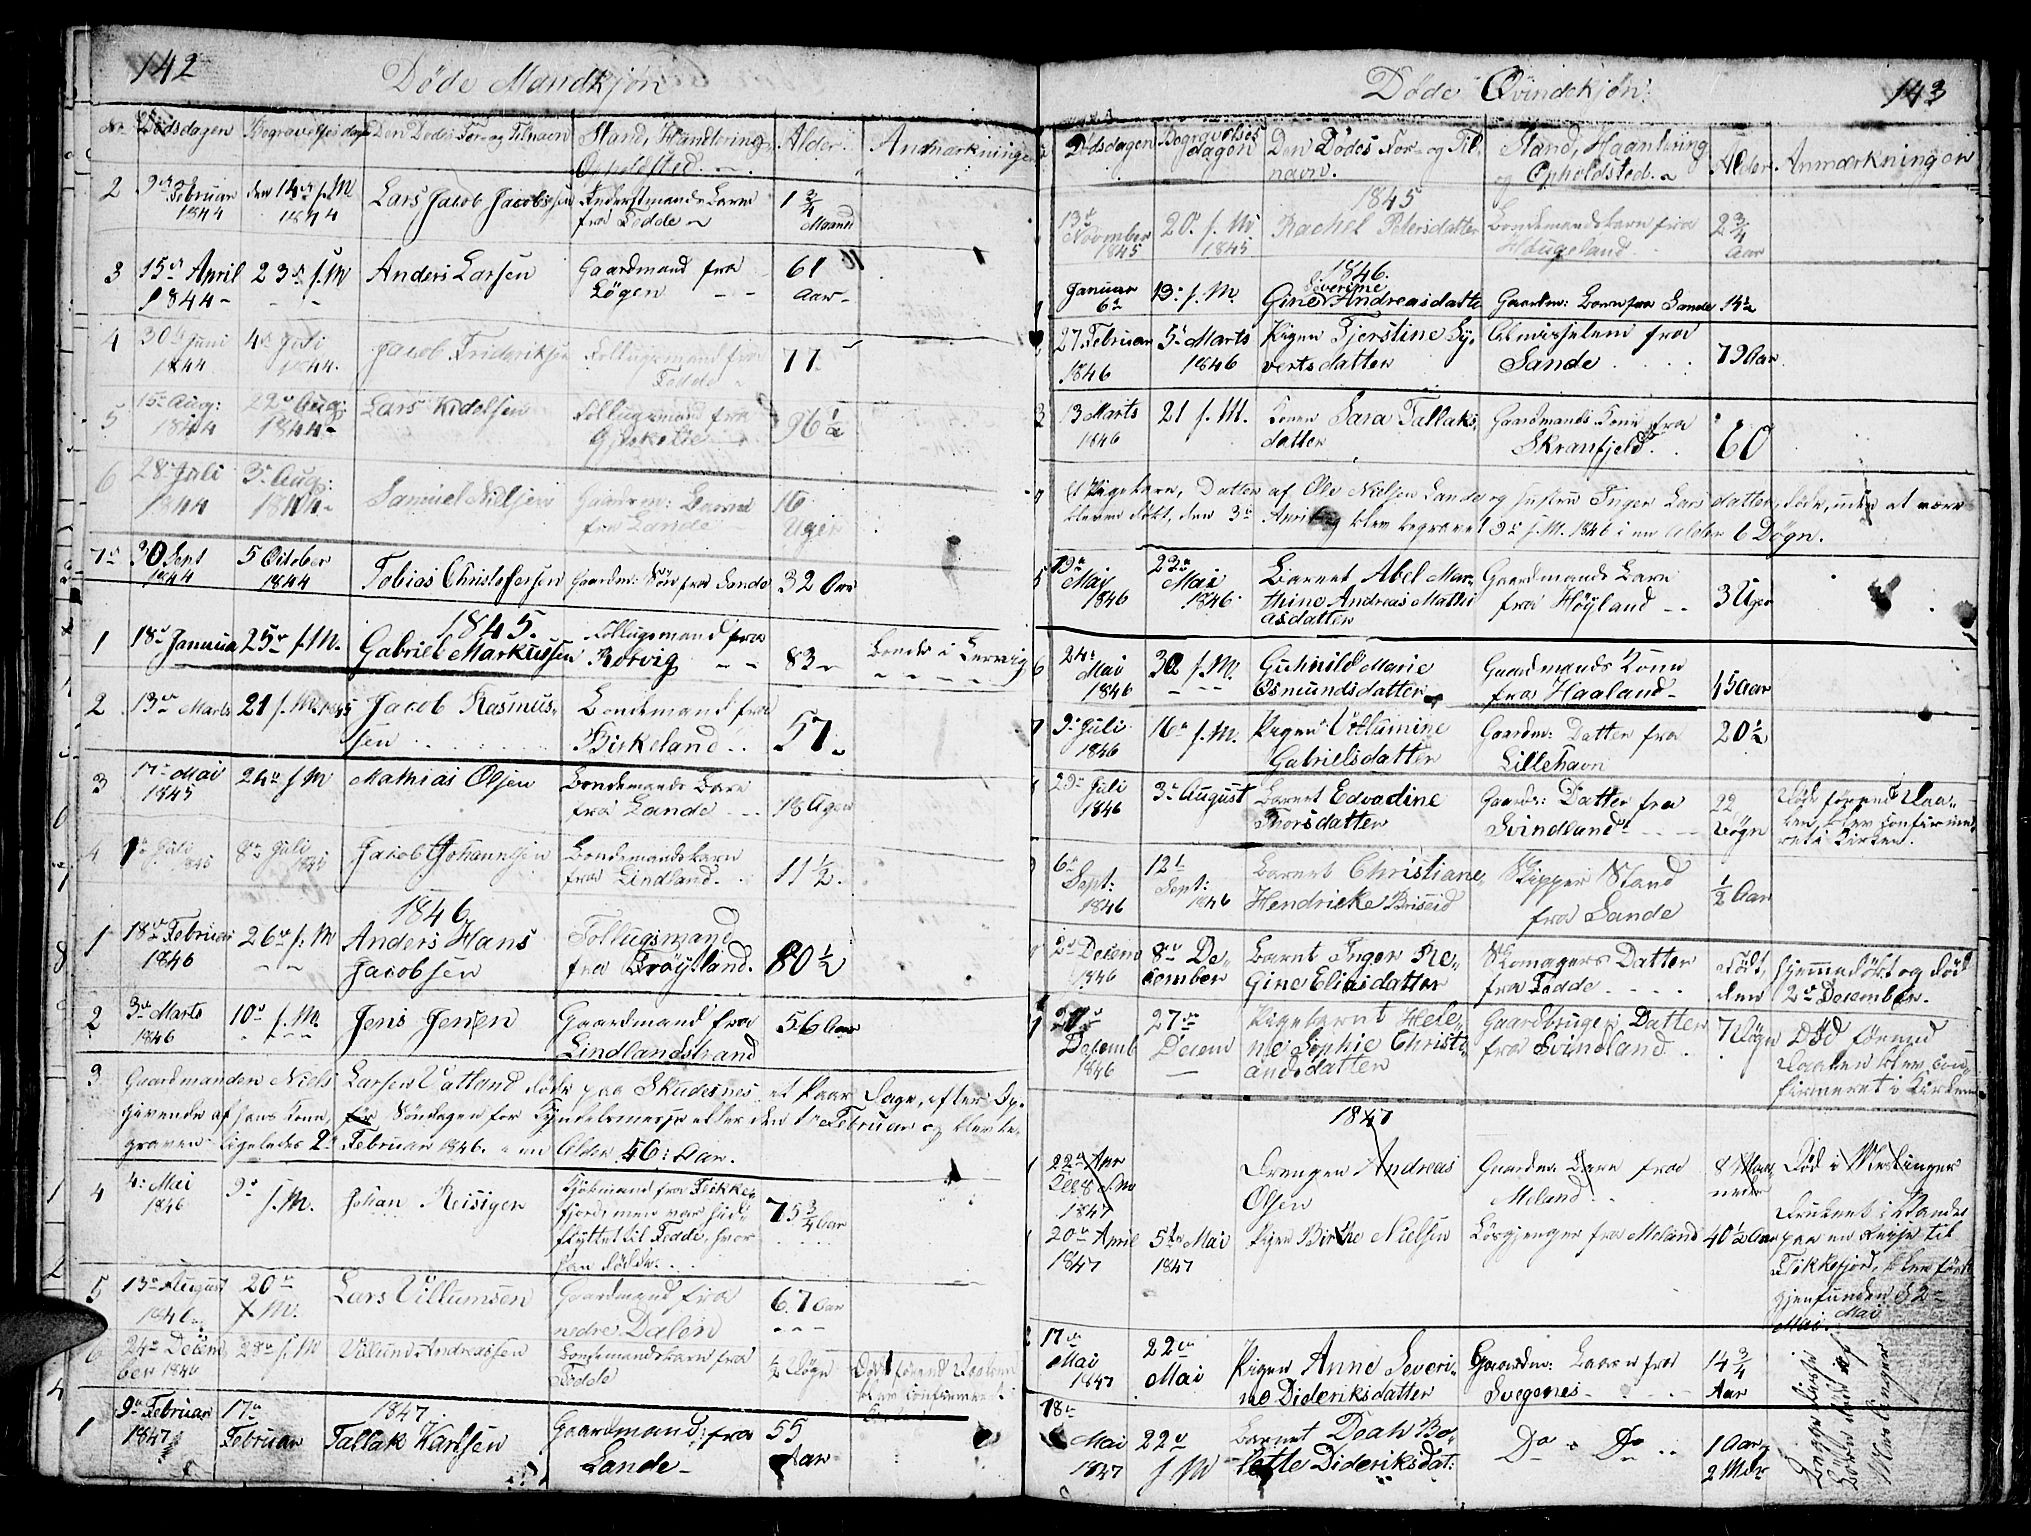 142
Døde Mandkjøn
No. Dødsdagen Begravelsesdagen Den Dødes For- og Tilnavn Stand, Handtering, Opholdsted. Alder. Anmærkninger
2 9de Februar 1844 den 14de s. M 1844 Lars Jacob Jacobsen fra Fedde 1 3/4 Maaned
3 15de April 1844 23de s. M Anders Larsen Gaardmand fra Løgen 61 Aar
4 30te Juni 1844 4de Juli 1844. Jacob Frideriksen Follugsmand fra Fedde 77
5 15de Aug: 1844 22de Aug: 1844 Lars Follugsmand fra 96 1/2
6 28de Juli 1844 3die Aug: 1844 Samuel Nielsen Gaardm: Barn fra Sande 16 Uger
7de 30 Sept 1844 5 October 1844 Tobias Christofersen Gaardm: Søn fra Sande 32 Aar
1845.
1 18de Januar 25de s. M. Gabriel Markussen Follugsmand fra Rørvig 83 Bonde i
2 13de Marts 21 s. M. 1845 Jacob Rasmussen Bondemand fra Birkeland 57
3 17de Mai 1845 24de s. M Mathias Olsen Bondemands Barn fra Sande 18 Uger
4 1ste Juli 1845 8de Juli 1845 Jacob Johannesen Bondemandsbarn fra Lindland. 11 1/2
1846
1 18de Februar 1846 26de s. M Anders Hans Jacobsen Follugsmand fra Frøytland. 80 1/2
2 3die Marts 1846 10de s. M. Jens Jensen Gaardmand fra Lindlandstrand 56 Aar
3 Gaardmanden Niels Larsen Vatland døde paa Skudesnes et Paar Dage, efter Op-
givende af hans Kone, før Søndagen for Kyndelsmesse eller den 1ste Februar og blev be-
graven ligeledes 2den Februar 1846. i en Alder 46: Aar.
4 4: Mai 1846 9de s. M. Johan Reisigen fra Flekkefjord, men var hid- flyttet til Fedde, hvor han døde. 75 3/4 Aar
5 13de August 1846 20de s. M. Lars Villumsen Gaardmand fra nedre Dalen 67 Aar
6 24de December 1846 28de s. M Villum Andreassen Bondemandsbarn fra Fedde 1/2 Døgn Død førend Daaben blev confirmeret i Kirken
1847.
1 9de Februar 1847 17de Februar Tallak Karlsen Gaardmand fra Sande 55 Aar
Døde Qvindekjøn. 143
Dødsdagen Begravelsesdagen Den Dødes For- og Tilnavn. Stand, Haantering og Opholdsted. Alder. Anmærkninger
1845
13de November 1845 20de s. M 1845 Rachel Petersdatter Bondemandsbarn fra Hougeland 2 3/4 Aar
1846.
1 Januar 6te 13de s. M. Gine Severine Andreasdatter Gaardm: Barn fra Sande 14 1/2
27 Februar 1846 5te Marts 1846 Pigen Tjerstine Sy- vertsdatter Almisselem fra Sande 79 Aar
3 13 Marts 1846 21 s. M. Konen Sara Tallaks datter Gaardmands Kone fra Skranfjeld 60
4 Et Pigebarn, Datter af Ole Nielsen Sande og Hustru Inger Larsdatter, døde, uden at være
bleven døbt, den 3die April og blev begravet 9de s. M. 1846 i en Alder 6 Døgn.
5 19de Mai 1846 23de Mai 1846 Barnet Abel Mar- thine Andrea Mathi asdatter Gaardmands Barn fra Høyland 3 Uger
6 24de Mai 1846 30 s. M. Guhnild Marie Osmundsdatter Gaardmands Kone fra Haaland 45 Aar
7 9de Juli 1846 16de s. M. Pigen Villumine Gabrielsdatter Gaardm: Datter fra Lillehavn 20 1/2
8 29de Juli 1846 3die August Barnet Edvadine Thorsdatter Gaardm: Datter fra Svindland 22 Døgn Død førend Daa- ben blev confirme- ret i Kirken.
9 6te Sept: 1846 12te Sept: 1846 Barnet Christiane Hendrickke Briseid Skipper Stand fra Sande 1/2 Aar
2den Decemb 1846 8de De- cember Barnet Inger Re- gine Eliasdatter Skomagers Datter fra Fedde Født, den hjemmedøbt og død 2den December.
Decemb 1846 27de Decem Pigebarnet Hele- ne Sophie Christi- andsdatter Gaardbruger: Datter fra Svindland 7 Døgn Død førend Daaben blev con- firmeret i Kirken
1847
1 22de Apr 1847 Drengen Andreas Olsen Gaardm: Barn fra Meland 8 Maa- neder Død i Meslinger
1 20de April 1847 5te Mai 1847 Pigen Birthe Nielsen Løsgjenger fra Meland 40 1/2 Aar Druknet i Vandet paa en Reise til Flekkefjord, blev først gjenfunden d 2den Mai
2 17de Mai 1847 22de Mai Pigen Anne Severi- ne Dideriksdatter Gaardm: Barn fra Svegenes 14 3/4 Aar
18de Mai 1847 22de s. M Barnet Deah Bo- lette Dideriksdat: Do Do 1 Aar 2 Mdr
Begge disse Børn død af Meslinger